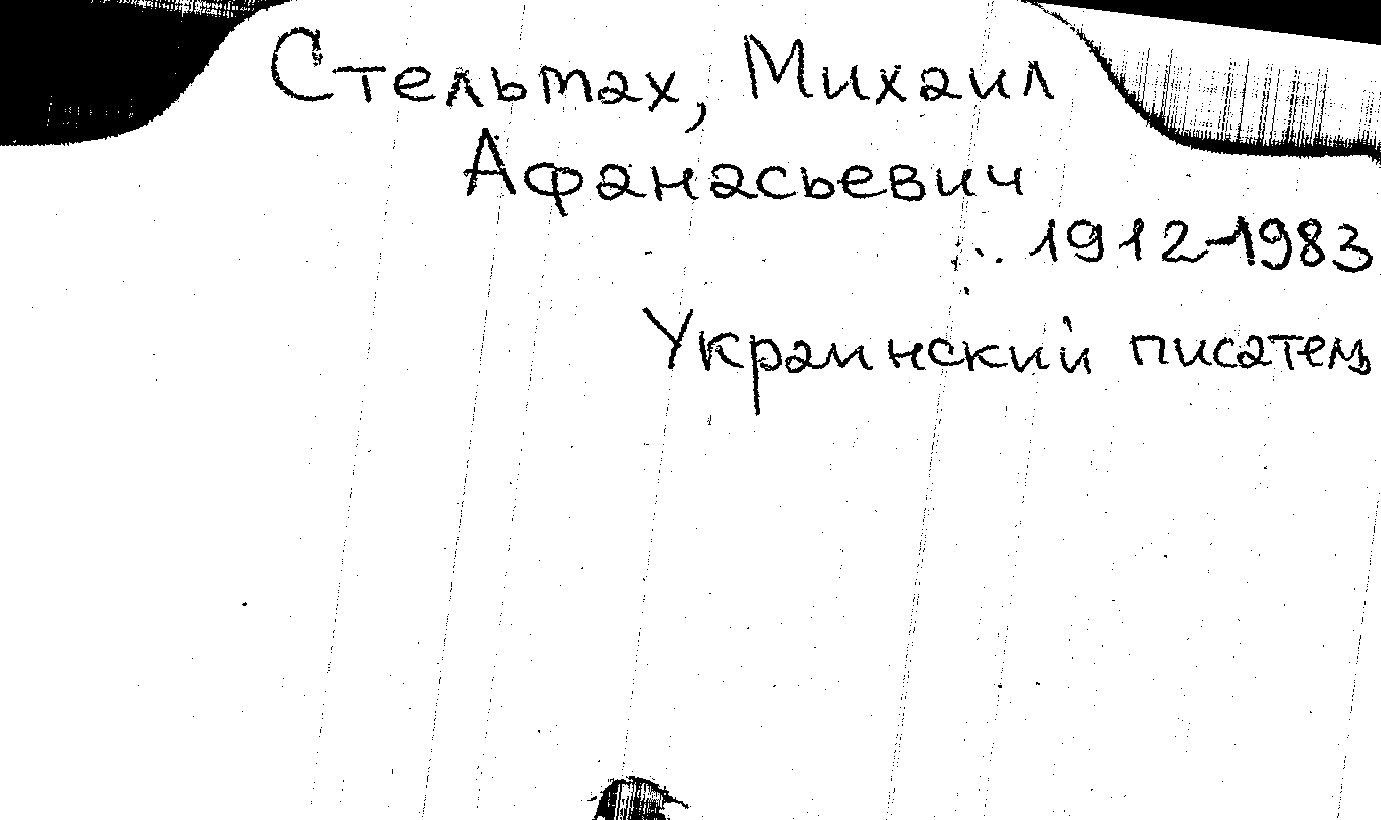 Стельмах, Михаил
Афанасьевич
1912-1983
Украинский писатель